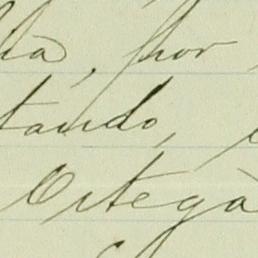 ha, por
tando,
Ortega